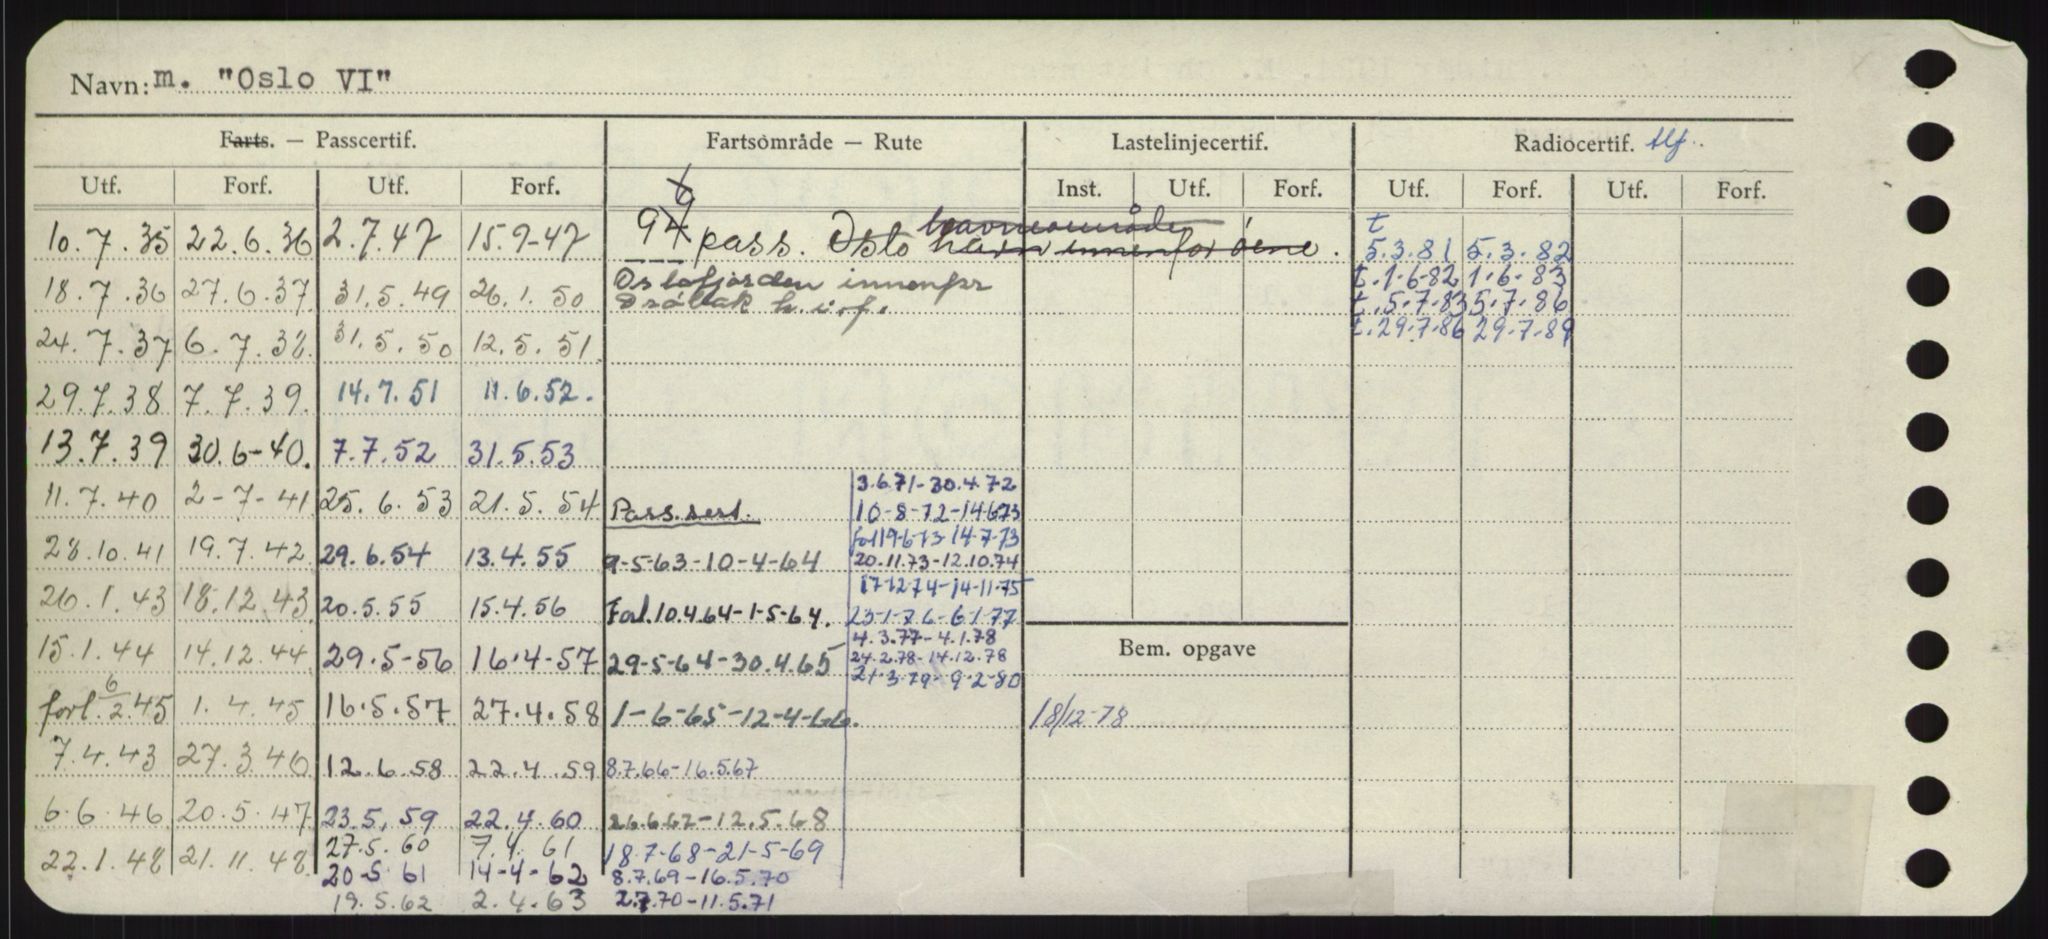 Navn: m. "Oslo VI"
Farts. — Passcertif. Fartsområde — Rute Lastelinjecertif. Radiocertif. tlf.
Utf. Forf. Utf. Forf. Inst. Utf. Forf. Utf. Forf. Utf. Forf.
10.7.35 22.6.36 2.7.47 15.9-47 94 6 pass. Oslo havn innenfor øene. havneområde t 5.3.81 5.3.82
18.7.36 27.6.37 31.5.49 26.1.50 Oslofjorden innenfor t.1-6-82 1-6-83
Drøbak h.i.f. t.5-7-83 5.7.86
24.7.37 6.7.38. 31.5.50 12.5.51. t.29.7.86 29.7.89
29.7.38 7.7.39. 14.7.51 11.6.52.
13.7.39 30.6-40. 7.7.52 31.5.53
3.6.71-30.4.72
11.7.40 2-7-41 25.6.53 21.5.54 Pass.sert. 10-8-72-14.6.73
forl 19-6-73-14-7-73
28.10.41 19.7.42 29.6.54 13.4.55 9-5-63-10-4-64 20.11.73-12.10.74
17-12-74-14-11-75
26.1.43 18.12.43 20.5.55 15.4.56 Forl.10.4.64-1-5-64. 23-1-76-6-1-77
4.3.77-4.1.78
15.1.44 14.12.44 29.5-56 16.4-57 29-5-64-30.4.65 24.2.78-14.12.78 Bem. opgave
21.3.79-9.2-80
forl. 6/2.45 1.4.45 16.5.57 27.4.58 1-6-65-12-4-66. 18/12-78
7.4.43 27.3.46 12.6.58 22.4.59 8.7.66-16.5.67
6.6.46 20.5.47 23.5.59 22.4.60 26.6.67-12.5.68
27.5.60 7.4.61
22.1.48 21.11.48. 18.7-68-21-5-69
20-5 61 14-4-62 8.7.69-16.5.70
19.5.62 2.4.63 2.7.70-11.5.71